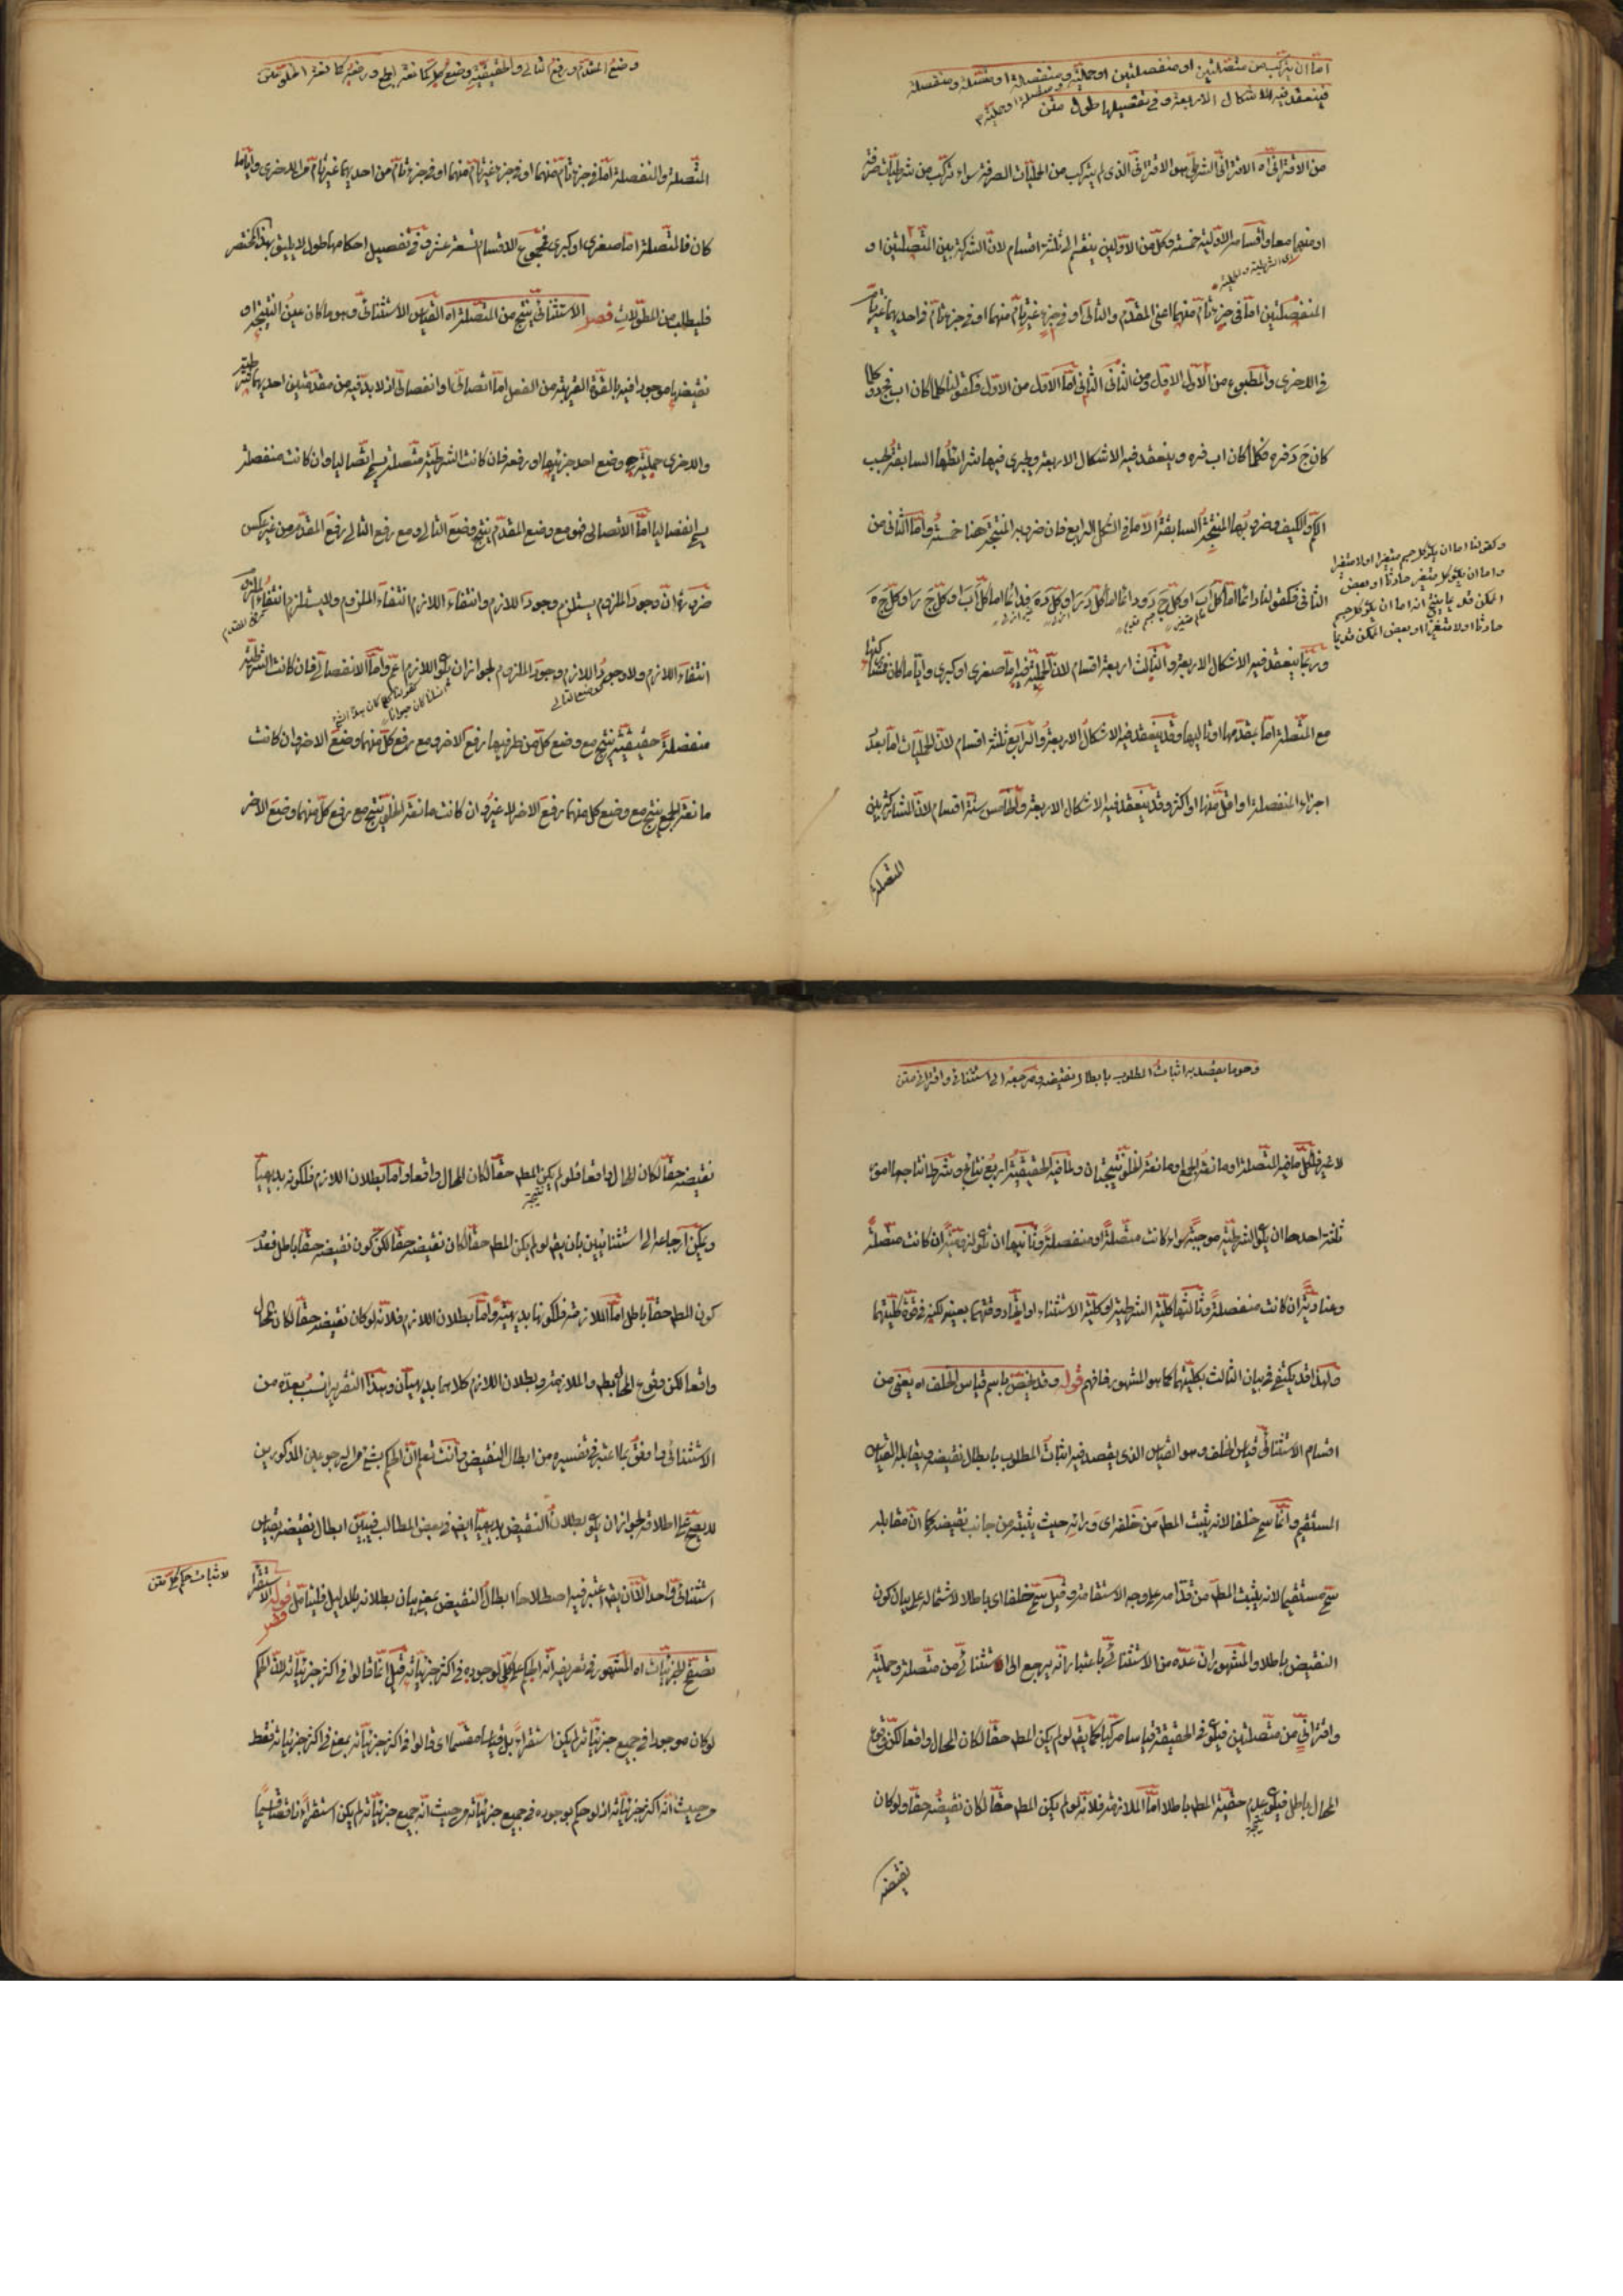 اما ان يتركب من متصلتين او منفصلتين او حملية و متصلة او حملية و منفصلة او متصلة و منفصلة
فينعقد فيه الاشكال الاربعة و فى تفصيلها طول متن
من الاقترانى اه الاقترانى الشرطى هو الاقترانى الذى لم يتركب من الحمليات الصرفة سواء تركب من شرطيات صرفة
او منهما معا و اقسامه الاولية خمسة و كل من الاولين ينقسم الى ثلثة اقسام لان الشركة بين المتصلتين او
اى الشرطية و الحملية
المنفصلتين اما فى جزء تام منهما اعنى المقدم و التالى او فى جزء غير تام منهما او فى جزء تام فى احديهما غير تام
فى الاخرى و المطبوع من الاول الاول و من الثانى الثانى اما الاول من الاول فكقولنا كلما كان اب فج د و كلما
كان ج د فه ز فكلما كان اب فه ز و ينعقد فيه الاشكال الاربعة و يجرى فيها شرائطها السابقة بحسب
الكم و الكيف و ضروبها المنتجة السابقة الا ما فى الشكل الرابع فان ضروبه المنتجة هنا خمسة و اما الثانى من
الثانى فكقولنا دائما اما كل اب او كل ج د و دائما اما كل د ر او كل ده فدائما اما كل اب او كل ج ر او كل ج ه
و ربما ينعقد فيه الاشكال الاربعة و الثالث اربعة اقسام لان الحملية فيه اما صغرى او كبرى و ايا ما كان فشركتها
مع المتصلة اما بمقدمها او تاليها و قد ينعقد فيه الاشكال الاربعة و الرابع ثلثة اقسام لان الحمليات اما بعدد
اجزاء المنفصلة او اقل منها او اكثر و قد ينعقد فيه الاشكال الاربعة و الخامس ستة اقسام لان المشاركة بين
المتصلة
و كقولنا اما ان يكون كل جسم متغيرا او لا متغيرا
و اما ان يكون كل متغير حادثا او بعض
الممكن قديما ينتج انه اما ان يكون كل جسم
حادثا او لا متغيرا او بعض الممكن قديما
وضع المقدم و رفع التالى و الحقيقية وضع كل كمانعة الجمع و رفعه كمانعة الخلو متن
المتصلة و المنفصلة اما فى جزء تام منهما او فى جزء غير تام منهما او فى جزء تام من احديهما غير تام من الاخرى و ايا ما
كان فالمتصلة اما صغرى او كبرى فمجموع الاقسام تسعة عشر و فى تفصيل احكامها طول لا يليق بهذا المختصر
فليطلب من المطولات فصل الاستثنائى ينتج من المتصلة اه القياس الاستثنائى و هو ما كان عين النتيجة او
نقيضها موجودا فيه بالقوة القريبة من الفعل اما اتصالى او انفصالى اذ لا بد فيه من مقدمتين احديهما شرطية
و الاخرى حملية هى وضع احد جزئيها او رفعه فان كانت الشرطية متصلة يسمى اتصاليا و ان كانت منفصلة
يسمى انفصاليا اما الاتصالى فهو مع وضع المقدم ينتج وضع التالى و مع رفع التالى رفع المقدم من غير عكس
ضرورة ان وجود الملزوم يستلزم وجود اللازم و انتفاء اللازم انتفاء الملزوم و لا يستلزم انتفاء الملزوم
انتفاء اللازم و لا وجود اللازم وجود الملزوم لجواز ان يكون اللازم اعم و اما الانفصالى فان كانت الشرطية
وضع التالى
منفصلة حقيقية ينتج مع وضع كل من طرفيها رفع الاخر و مع رفع كل منهما وضع الاخر و ان كانت
مانعة الجمع ينتج مع وضع كل منهما رفع الاخر لا غير و ان كانت مانعة الخلو ينتج مع رفع كل منهما وضع الاخر
و هو ما يقصد به اثبات المطلوب بابطال نقيضه و مرجعه الى استثنائى و اقترانى متن
لا غير فلكل ما فيه المتصلة او مانعة الجمع او مانعة الخلو نتيجتان و لما فيه الحقيقية اربع نتائج و شرط انتاجها امور
ثلثة احدها ان يكون الشرطية موجبة سواء كانت متصلة او منفصلة و ثانيها ان يكون لزومية ان كانت متصلة
و عنادية ان كانت منفصلة و ثالثها كلية الشرطية او كلية الاستثناء او اتحاد وقتهما بعينه لكنه فى قوة كليتهما
و لهذا قد يكتفى فى بيان الثالث بكليتهما كما هو المشهور فافهم قوله و قد يختص باسم قياس الخلف اه يعنى من
اقسام الاستثنائى قياس الخلف و هو القياس الذى يقصد فيه اثبات المطلوب بابطال نقيضه و يقابله القياس
المستقيم و انما سمى خلفا لانه يثبت المط من خلفه اى ورائه حيث يثبته من جانب نقيضه كما ان مقابله
سمى مستقيما لانه يثبت المط من قدامه على وجه الاستقامة و قيل سمى خلفا اى باطلا لاشتماله على بيان كون
النقيض باطلا و المشهور ان عده من الاستثنائى باعتبار انه يرجع الى استثنائى من متصلة و حملية
و اقترانى من متصلتين فيكون فى الحقيقة قياسا مركبا كما يقال لو لم يكن المط حقا لكان المحال واقعا لكن وقوع
المحال باطل فيكون عدم حقية المط باطلا اما الملازمة فلانه لو لم يكن المط حقا لكان نقيضه حقا و لو كان
نتيجة
نقيضه
نقيضه حقا لكان المحال واقعا فلو لم يكن المط حقا لكان المحال واقعا و اما بطلان اللازم فلكونه بديهيا
نتيجة
و يمكن ارجاعه الى استثنائيين بان يقال لو لم يكن المط حقا لكان نقيضه حقا لكن كون نقيضه حقا باطل فعدم
كون المط حقا باطل اما الملازمة فلكونها بديهية و اما بطلان اللازم فلانه لو كان نقيضه حقا لكان المحال
واقعا لكن وقوع المحال بط و الملازمة و بطلان اللازم كلاهما بديهيان و هذا التقرير انسب بعده من
الاستثنائى و اوفق بما اعتبر فى تفسيره من ابطال النقيض و انت تعلم ان الحكم بشئ من الرجوعين المذكورين
لا يصح على اطلاقه لجواز ان يكون بطلان النقيض بديهيا ايضا فى بعض المطالب فيبين ابطال نقيضه بقياس
استثنائى واحد الا ان يقال اعتبر فيه اصطلاحا ابطال النقيض بمعنى بيان بطلانه بالدليل فليتأمل قوله الاستقراء
فصل
لاثبات حكم كلى متن
تصفح الجزئيات اه المشهور فى تعريفه انه الحكم على كلى لوجوده فى اكثر جزئياته قيل انما قالوا فى اكثر جزئياته لان الحكم
لو كان موجودا فى جميع جزئياته لم يكن استقراء بل قياسا مقسما اى قالوا فى اكثر جزئياته بمعنى فى اكثر جزئياته فقط
من حيث انه اكثر جزئياته اذ لو حكم بوجوده فى جميع جزئياته من حيث انه جميع جزئياته لم يكن استقراء ناقصا قسيما